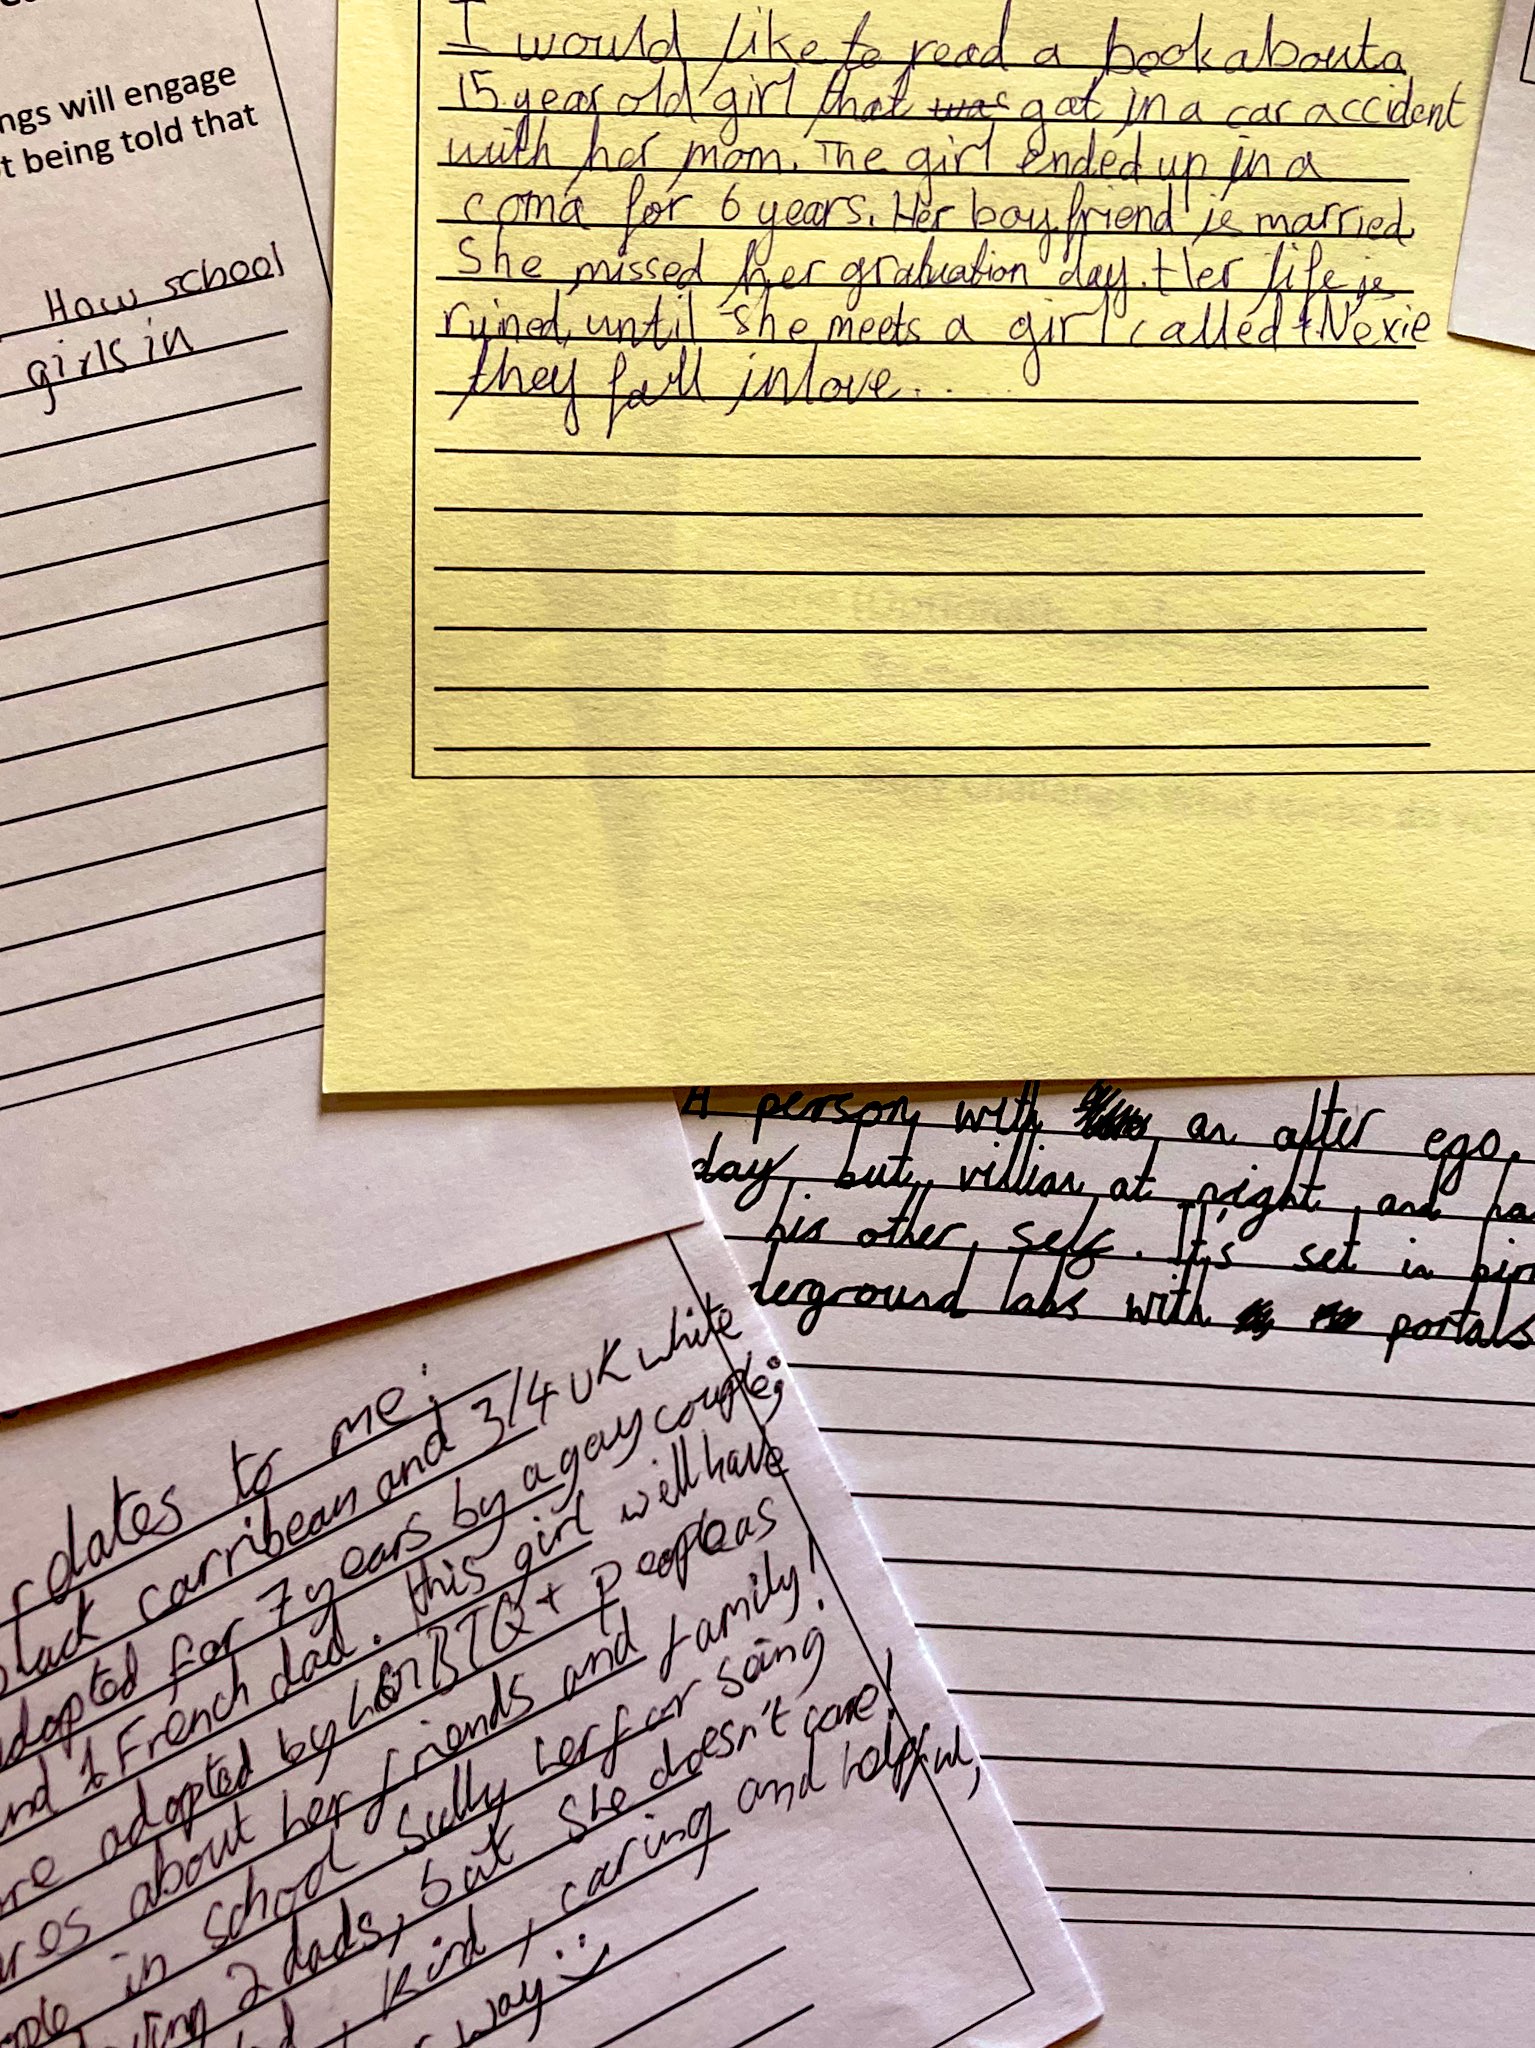 ngs will engage
being told that
How school
girls in
I would like to read a book about a
15 year old girl that was got in a car accident
with her mom. The girl ended up in a
coma for 6 years. Her boyfriend is married
She missed her graluation day. Her life is
ruined until she meets a girl called Nexie
they fall in love...
A person with an alter ego,
day, but villian at night, and ha
his other self. It's set in bir
derground labs with portals
relates to me:
black carribean and 3/4 UK white
adopted for 7 years by a gay couple;
and 1 French dad. this girl will have
adopted by LGBTQ+ people as
ares about her friends and family!
ople in school sully her for soing
2 dads, but she doesn't care!
, kind, caring and helpful,
way :)